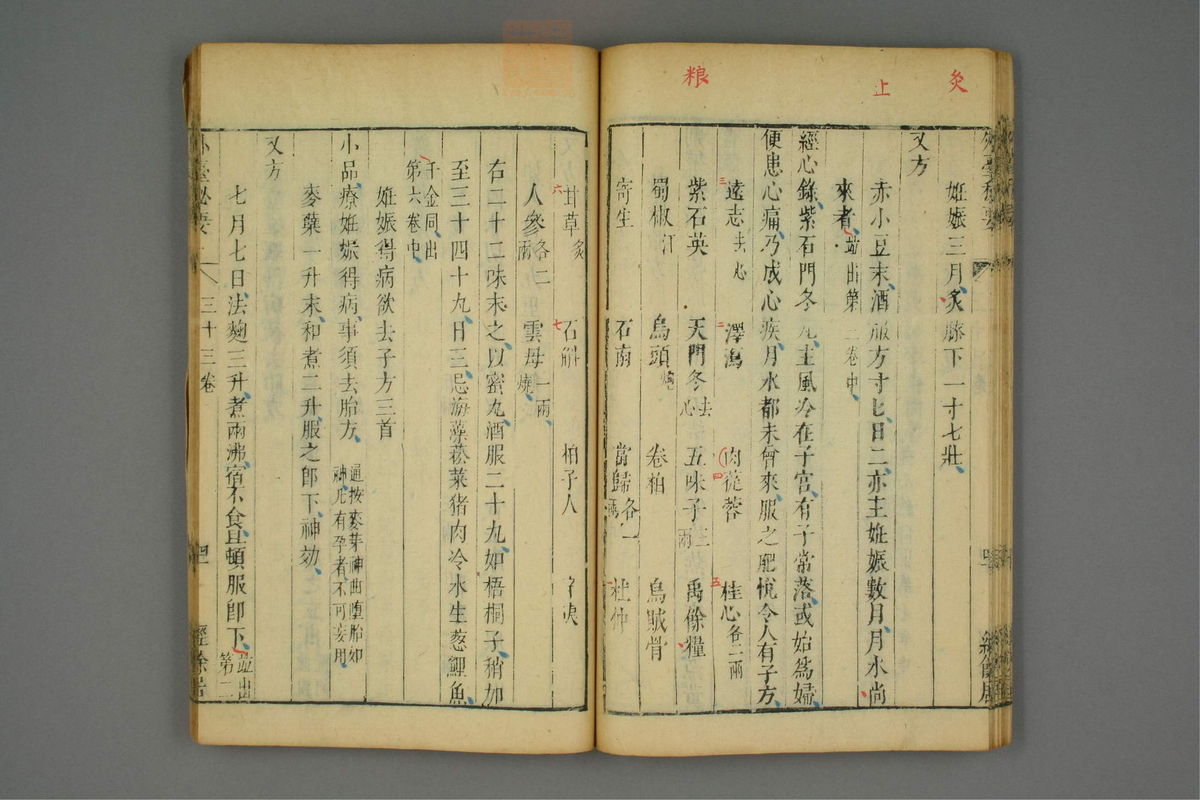 灸
止
粮
妊娠三月灸膝下一寸七壯
又方
赤小豆末酒服方寸匕日二亦主妊娠數月月水尚
來者並出第二卷中
經心錄紫石門冬丸主風冷在子宮有子常落或始為婦
便患心痛乃成心疾月水都未曾來服之肥悅令人有子方
三遠志去心 二澤瀉 四肉蓯蓉 五桂心各二兩
紫石英 天門冬去心 五味子三兩 禹餘糧
蜀椒汗 烏頭炮 卷柏 烏賊骨
寄生 石南 當歸各一兩 杜仲
六甘草炙 七石斛 柏子人 辛夷
人參各二兩 雲母一兩燒
右二十二味末之以蜜丸酒服二十丸如梧桐子稍加
至三十四十丸日三忌海藻菘菜豬肉冷水生葱鯉魚
千金同出第六卷中
妊娠得病欲去子方三首
小品療妊娠得病事須去胎方 通按麥芽神曲墮胎如神凡有孕者不可妄用
麥蘖一升末和煮二升服之卽下神効
又方
七月七日法麴三升煮兩沸宿不食旦頓服卽下並出第二
外臺秘要 三十三卷 四 經餘居